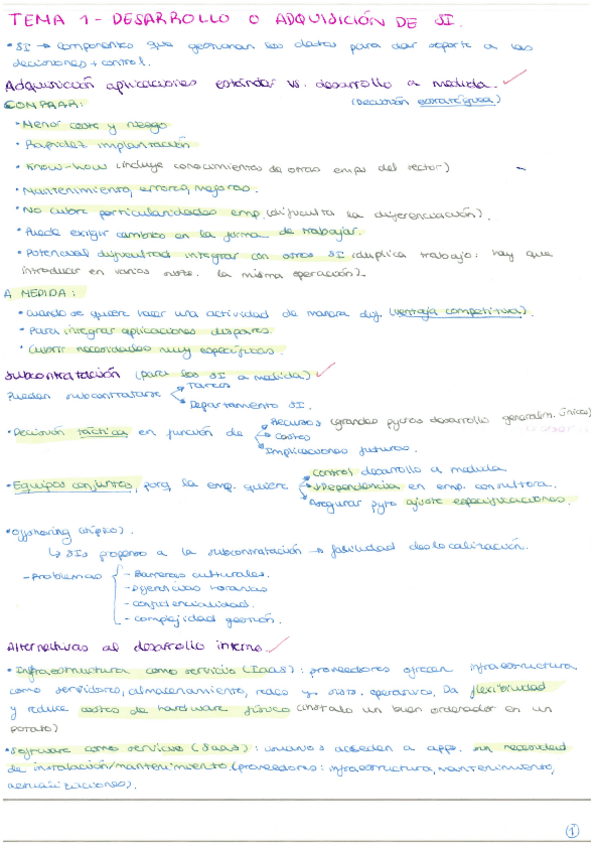 TEMA 1 - DESARROLLO O ADQUISICIÓN DE SI.
• SI → componentes que gestionan los datos para dar soporte a las
decisiones + control.
Adquisición aplicaciones estándar vs. desarrollo a medida.
(Decisión estratégica)
COMPRAR:
• Menor coste y riesgo
• Rapidez implantación
• Know-how (incluye conocimientos de otras emps del sector)
• Mantenimiento, errores, mejoras.
• No cubre particularidades emp. (dificulta la diferenciación).
• Puede exigir cambios en la forma de trabajar.
• Potencial dificultad integrar con otros SI (duplica trabajo: hay que
introducir en varios sist. la misma operación).
A MEDIDA:
• cuando se quiere hacer una actividad de manera dif. (ventaja competitiva).
• Para integrar aplicaciones dispares.
• Cubrir necesidades muy específicas.
Subcontratación (para los SI a medida)
Pueden subcontratarse
Tareas
Departamento SI.
• Decisión táctica en función de
Recursos (grandes pytos desarrollo generalm. únicos)
Costes
Implicaciones futuras.
• Equipos conjuntos, porq la emp. quiere
control desarrollo a medida
↓Dependencia en emp. consultora.
Asegurar pyto ajuste especificaciones.
• Offshoring (típico).
↳ SIs propenso a la subcontratación → facilidad deslocalización.
- Problemas
- Barreras culturales.
- Diferencias horarias
- confidencialidad.
- complejidad gestión.
Alternativas al desarrollo interno
• Infraestructura como servicio (IaaS): proveedores ofrecen infraestructura
como servidores, almacenamiento, redes y sist. operativos. Da flexibilidad
y reduce costes de hardware físico (instalo un buen ordenador en un
• Software como servicio (SaaS): usuarios acceden a apps. sin necesidad
de instalación/mantenimiento (proveedores: infraestructura, mantenimiento,
actualizaciones).
1